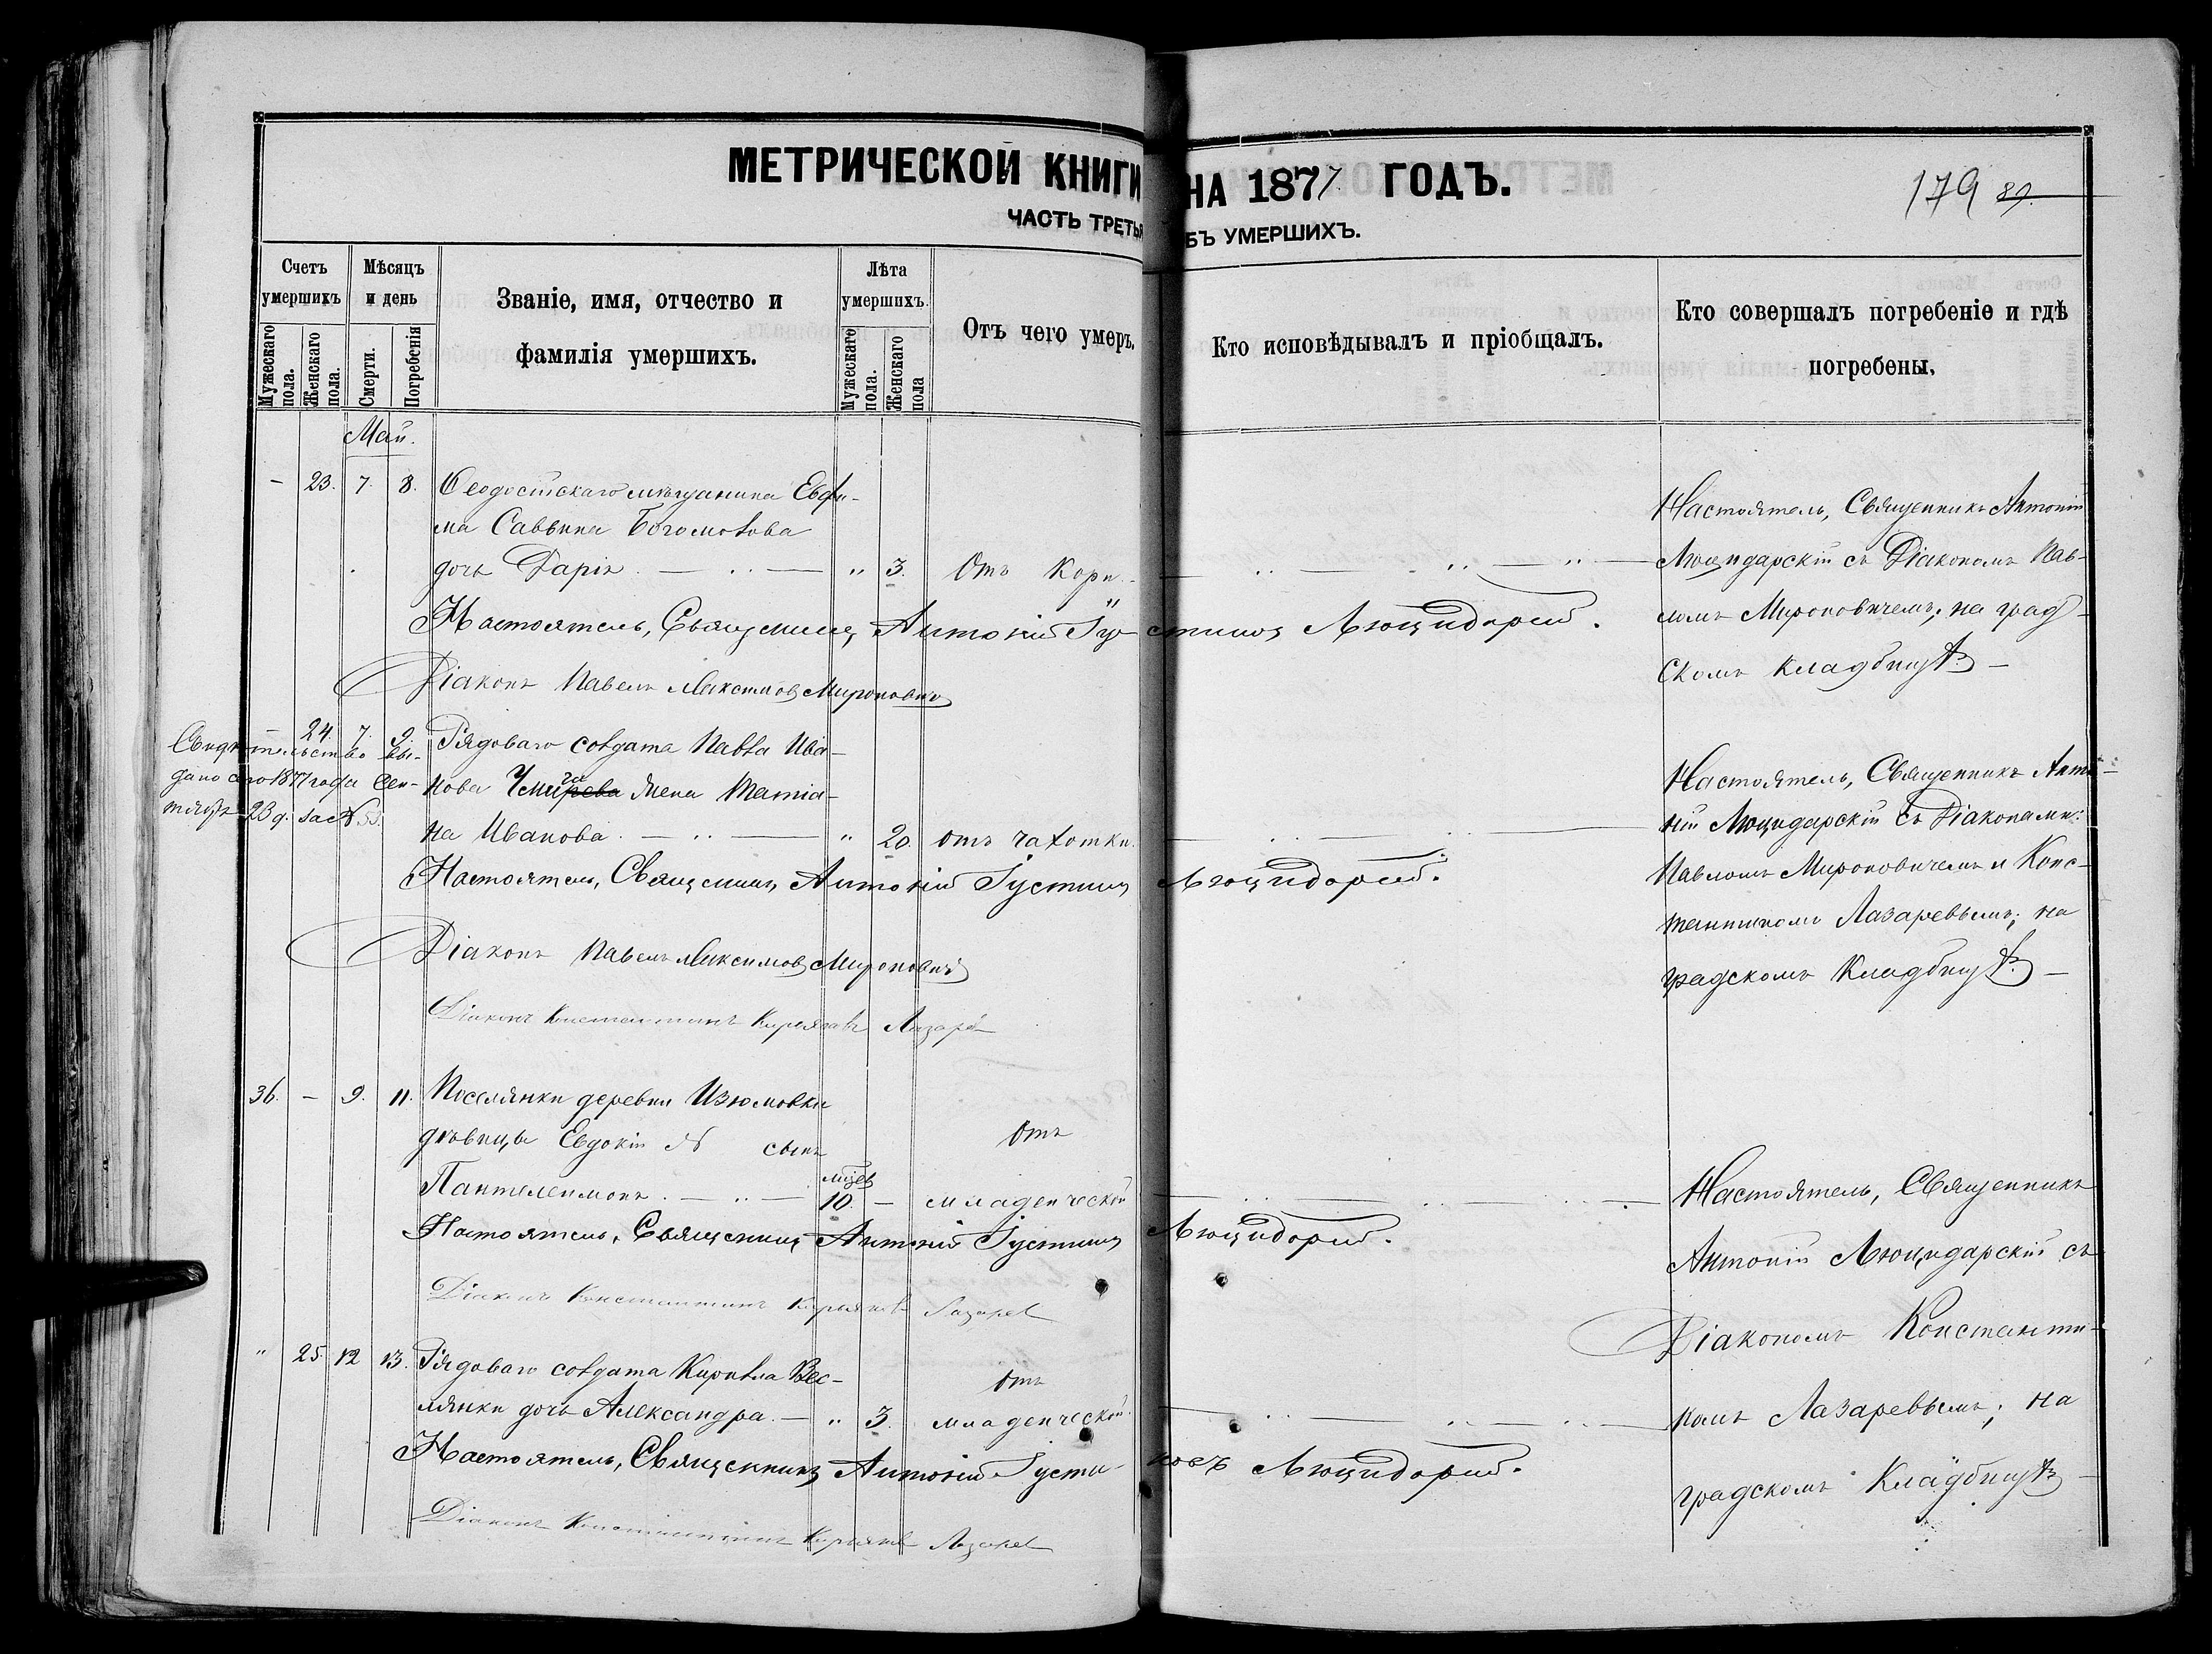 МЕТРИЧЕСКОЙ КНИГИ НА 1877 ГОДЪ.
179 89.
ЧАСТЬ ТРЕТЬЯ БЪ УМЕРШИХЪ.
Счетъ умершихъ
Мужескаго пола.
Женскаго пола.
Мѣсяцъ и день
Смерти.
Погребенія
Званіе, имя, отчество и
фамилія умершихъ.
Лѣта умершихъ.
Мужескаго пола.
Женскаго пола
Отъ чего умеръ.
Кто исповѣдывалъ и пріобщалъ.
Кто совершалъ погребеніе и гдѣ
погребены.
Май.
- 23. 7. 8. Ѳеодосійскаго мѣщанина Евфи-
ма Саввина Богомолова
дочь Дарія. — " 3. Отъ кори.
Настоятель, Священникъ Антоній Іустиновъ Люцидарскій.
Діаконъ Павелъ Максимовъ Мироновичъ
Настоятель, Священникъ Антоній
Люцидарскій съ Діакономъ Пав-
ломъ Мироновичемъ; на град-
скомъ кладбищѣ —
- 24. 7. 9. Рядоваго солдата Павла Ива-
нова жена Татіа-
на Иванова. — " 20. отъ чахотки.
Свидѣтельство вы-
дано сего 1877 года Сен-
тября 23 д. за №
Настоятель, Священникъ Антоній Іустиновъ Люцидарскій.
Діаконъ Павелъ Максимовъ Мироновичъ
Діаконъ Константинъ Лазаревъ
Настоятель, Священникъ Анто-
ній Люцидарскій съ Діаконами:
Павломъ Мироновичемъ и Конс-
тантиномъ Лазаревымъ; на
градскомъ кладбищѣ —
36. - 9. 11. Поселянки деревни Изюмовки
дѣвицы Евдокіи N сынъ
Пантелеимонъ. — мѣсев 10. - Отъ
младенческой
Настоятель, Священникъ Антоній Іустиновъ Люцидарскій.
Діаконъ Константинъ Лазаревъ
" 25 12 13. Рядоваго солдата Кирилла Вес-
лянки дочь Александра. — " 3. Отъ
младенческой
Настоятель, Священникъ Антоній Іустиновъ Люцидарскій.
Діаконъ Константинъ Лазаревъ
Настоятель, Священникъ
Антоній Люцидарскій съ
Діакономъ Константи-
номъ Лазаревымъ; на
градскомъ кладбищѣ —